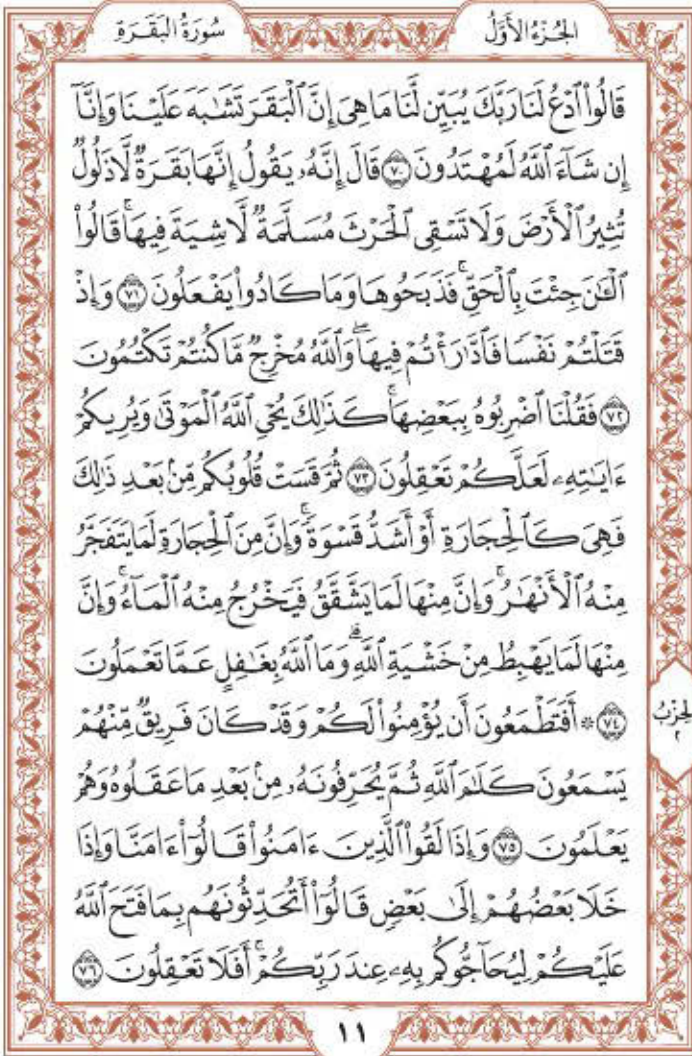 الجُزْءُ الأَوَّلُ
سُورَةُ البَقَرَةِ
قَالُواْ ٱدْعُ لَنَا رَبَّكَ يُبَيِّن لَّنَا مَا هِىَ إِنَّ ٱلْبَقَرَ تَشَٰبَهَ عَلَيْنَا وَإِنَّآ
إِن شَآءَ ٱللَّهُ لَمُهْتَدُونَ ٧٠ قَالَ إِنَّهُۥ يَقُولُ إِنَّهَا بَقَرَةٌ لَّا ذَلُولٌ
تُثِيرُ ٱلْأَرْضَ وَلَا تَسْقِى ٱلْحَرْثَ مُسَلَّمَةٌ لَّا شِيَةَ فِيهَاۚ قَالُواْ
ٱلْـَٰٔنَ جِئْتَ بِٱلْحَقِّۚ فَذَبَحُوهَا وَمَا كَادُواْ يَفْعَلُونَ ٧١ وَإِذْ
قَتَلْتُمْ نَفْسًا فَٱدَّٰرَْٰٔتُمْ فِيهَاۖ وَٱللَّهُ مُخْرِجٌ مَّا كُنتُمْ تَكْتُمُونَ
٧٢ فَقُلْنَا ٱضْرِبُوهُ بِبَعْضِهَاۚ كَذَٰلِكَ يُحْىِ ٱللَّهُ ٱلْمَوْتَىٰ وَيُرِيكُمْ
ءَايَٰتِهِۦ لَعَلَّكُمْ تَعْقِلُونَ ٧٣ ثُمَّ قَسَتْ قُلُوبُكُم مِّنۢ بَعْدِ ذَٰلِكَ
فَهِىَ كَٱلْحِجَارَةِ أَوْ أَشَدُّ قَسْوَةًۚ وَإِنَّ مِنَ ٱلْحِجَارَةِ لَمَا يَتَفَجَّرُ
مِنْهُ ٱلْأَنْهَٰرُۚ وَإِنَّ مِنْهَا لَمَا يَشَّقَّقُ فَيَخْرُجُ مِنْهُ ٱلْمَآءُۚ وَإِنَّ
مِنْهَا لَمَا يَهْبِطُ مِنْ خَشْيَةِ ٱللَّهِۗ وَمَا ٱللَّهُ بِغَٰفِلٍ عَمَّا تَعْمَلُونَ
٧٤ ۞ أَفَتَطْمَعُونَ أَن يُؤْمِنُواْ لَكُمْ وَقَدْ كَانَ فَرِيقٌ مِّنْهُمْ
الحِزْبُ ٢
يَسْمَعُونَ كَلَٰمَ ٱللَّهِ ثُمَّ يُحَرِّفُونَهُۥ مِنۢ بَعْدِ مَا عَقَلُوهُ وَهُمْ
يَعْلَمُونَ ٧٥ وَإِذَا لَقُواْ ٱلَّذِينَ ءَامَنُواْ قَالُوٓاْ ءَامَنَّا وَإِذَا
خَلَا بَعْضُهُمْ إِلَىٰ بَعْضٍ قَالُوٓاْ أَتُحَدِّثُونَهُم بِمَا فَتَحَ ٱللَّهُ
عَلَيْكُمْ لِيُحَآجُّوكُم بِهِۦ عِندَ رَبِّكُمْۚ أَفَلَا تَعْقِلُونَ ٧٦
١١